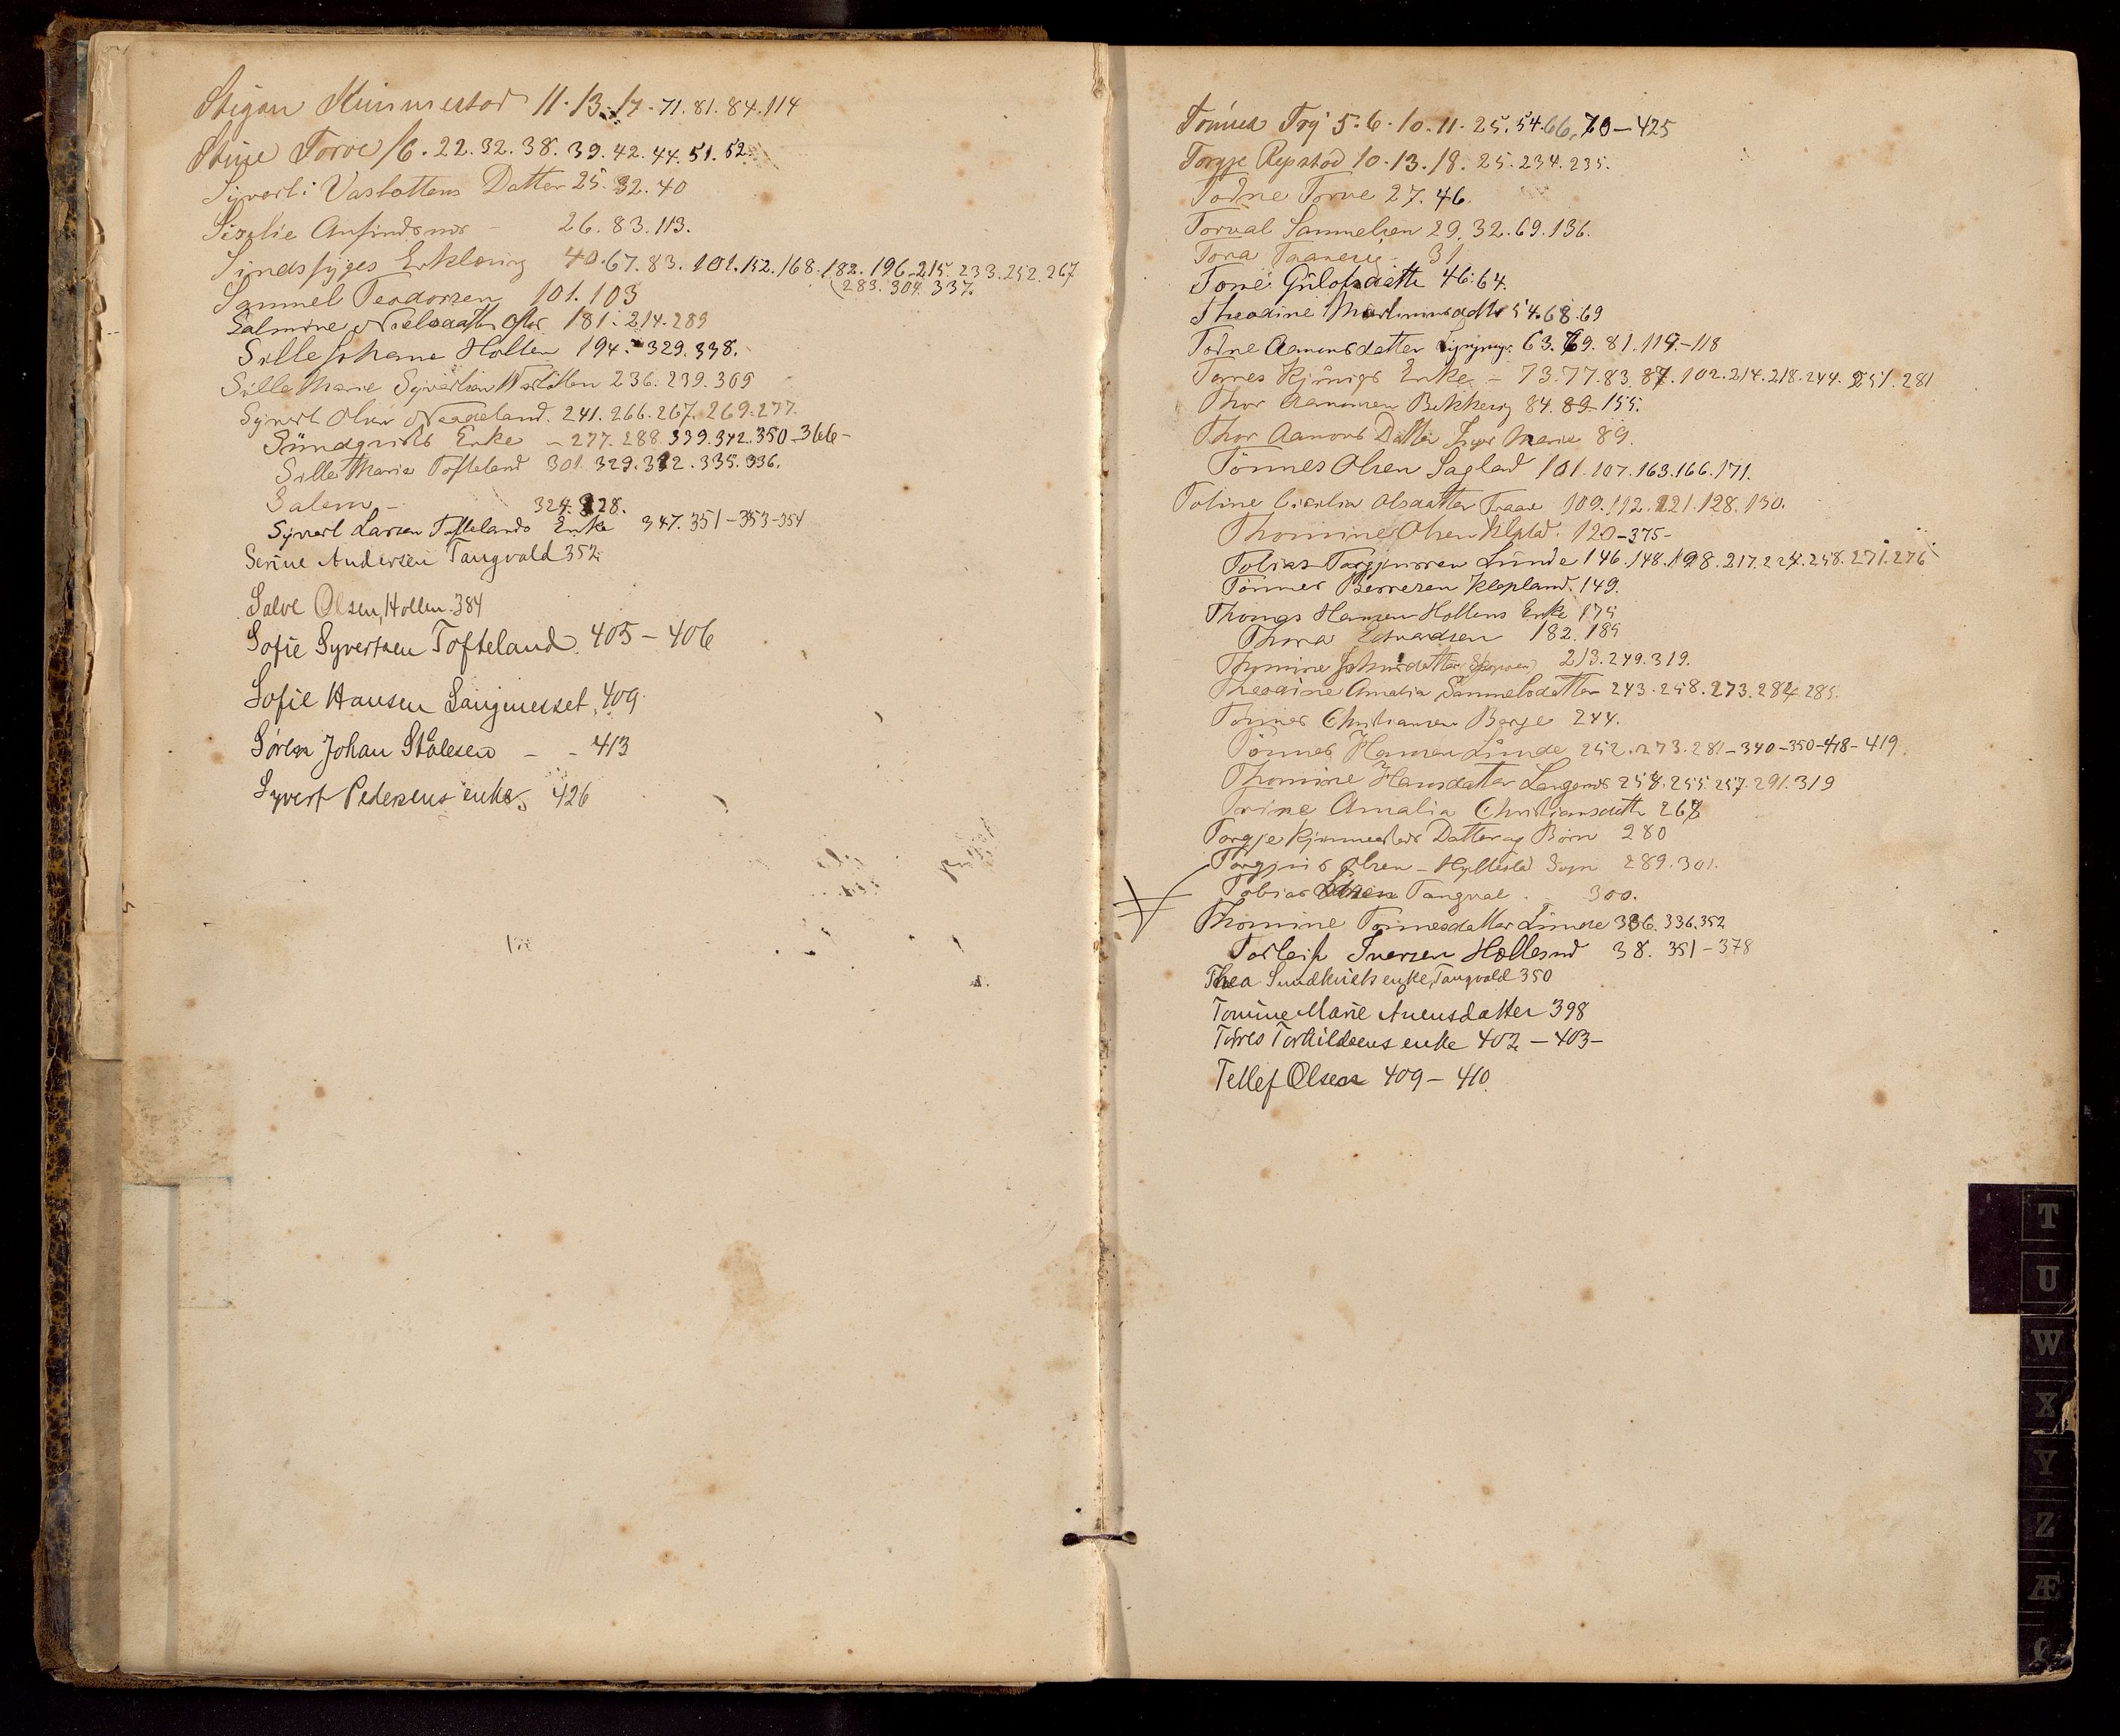 Stigan Kimmestad 11. 13. 17. 71. 81. 84. 114
Stine Torve 16. 22. 32. 38. 39. 42. 44. 51. 52.
Syverts Vaslottens Datter 25. 32. 40
Siselie Anfinds 26. 83. 113.
Sindssyges Erklæring 40. 67. 83. 101. 152. 168. 182. 196. 215. 233. 252. 267
(283. 304. 337.
Sammel Teodorsen 101. 103
Salmine Nielsdatter 181. 214. 289
Sille Johane Hollen 194. 329. 338.
Sille Marie Syvertsen 236. 239. 309
Syvert Olsen Nodeland. 241. 266. 267. 269. 277.
Sündqvists Enke - 277. 288. 339. 342. 350 - 366 -
Sille Marie Tofteland 301. 329. 332. 335. 336.
Salem - 324. 328.
Syvert Larsen Toftelands Enke 347. 351 - 353 - 354
Serine Andersen Tangvald 352
Salve Olsen, Hollen. 384
Sofie Syvertsen Tofteland. 405 - 406
Sofie Hansen Langnesset, 409.
Søren Johan Stålesen - - 413
Syvert Pedersens enke, 426
Tönnes Try 5. 6. 10. 11. 25. 54. 66. 70 - 425
Torgje Repstad 10. 13. 18. 25. 234. 235.
Todne Torve 27. 46.
Torval Sammelsen 29. 32. 69. 136.
Tora 31
Tone 46. 64.
Theodine Martinusdatter 54. 68. 69
Todne Aamonsdatter 63. 69. 81. 114. - 118
Torres Enke - 73. 77. 83. 87. 102. 214. 218. 244. 251. 281
Thor Aamonsen 84. 89. 155.
Thor Aamons Datter Inger Marie 89.
Tönnes Olsen 101. 107. 163. 166. 171.
Toline Cicilia Olsdatter 109. 112. 121. 128. 130.
Thomine Olsen 120 - 375 -
Tobias Torgjussen Lunde 146. 148. 198. 217. 224. 258. 271. 276
Tönnes Berresen Klepland. 149.
Thomas Hansen Hollens Enke 175
Thora Edvardsen 182. 185
Thomine Johnsdatter 213. 249. 319.
Theodine Amalia Sammelsdatter 243. 258. 273. 284. 285.
Tönnes Christiansen Berge 244.
Tönnes Hansen Lunde 252. 273. 281 - 340 - 350 - 418 - 419
Thomine Hansdatter 254. 255. 257. 291. 319
Torine Amalia Christiansdatter 268
Torgje Kjimmestads Datter og Børn 280
Torgjus Olsen - Søn 289. 301.
Tobias Tangval 300.
Thomine Tonnesdatter Lunde 336. 336. 352
Torleif Iversen 38. 351 - 378
Thea Sundkvists enke, Tangvald 350
Tomine Marie Avensdatter 398
Torres Torkildsens enke 402 - 403 -
Tellef Olsen 409 - 410.
T
U
W
X
Y
Z
Æ